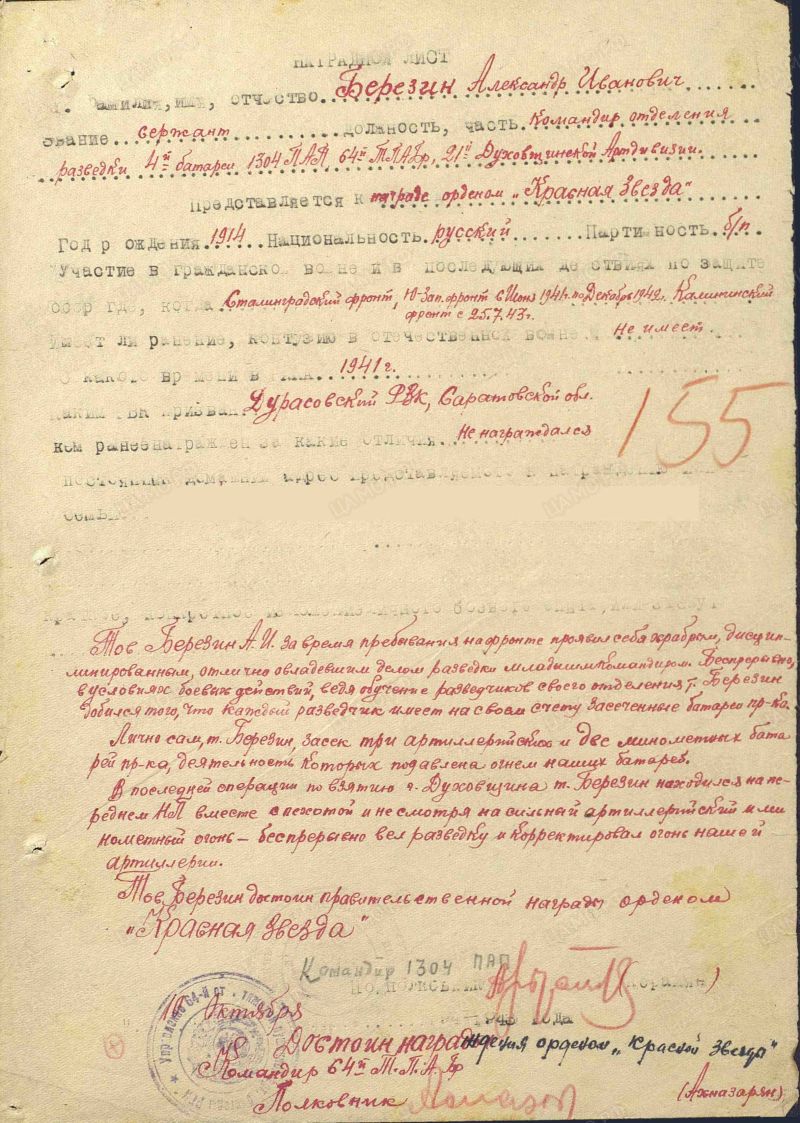 НАГРАДНОЙ ЛИСТ
Фамилия, имя, отчество Березин Александр Иванович
Звание сержант должность, часть Командир отделения
разведки 4й батареи 1304 ПАП 64й ТПАБр, 21й Духовщинской Артдивизии.
Представляется к награде орденом „Красная Звезда"
Год рождения 1914 Национальность русский Партийность б/п
Участие в гражданской войне и в последующих действиях по защите
СССР где, когда Сталинградский фронт, Ю-Зап. фронт с Июня 1941г. по Декабрь 1942г. Калининский
фронт с 25.7.43г.
Имеет ли ранение, контузию в отечественной войне Не имеет.
С какого времени в 1941 г.
Каким РВК призван Дурасовский РВК, Саратовской обл.
155
Кем ранее награжден за какие отличия Не награждался
постоянный домашний адрес представляемого к награждению
семьи
Краткое, конкретное изложение личного боевого
Тов Березин А.И. за время пребывания на фронте проявил себя храбрым, дисцип-
линированным, отлично овладевшим делом разведки младшим командиром. Беспрерывно,
в условиях боевых действий, ведя обучение разведчиков своего отделения т. Березин
добился того, что каждый разведчик имеет на своем счету засеченные батареи пр-ка.
Лично сам, т. Березин, засек три артиллерийских и две минометных бата
рей пр-ка, деятельность которых подавлена огнем наших батарей.
В последней операции по взятию г. Духовщина т. Березин находился на пе-
реднем НП вместе с пехотой и не смотря на сильный артиллерийский и ми
нометный огонь – беспрерывно вел разведку и корректировал огонь нашей
артиллерии.
Тов. Березин достоин правительственной награды орденом
„Красная Звезда"
Командир 1304 ПАП
10 Октября 1943 года
Достоин награждения орденом „Красной Звезды"
Командир 64й Т.П.А.Бр
Полковник (Ахназарян)